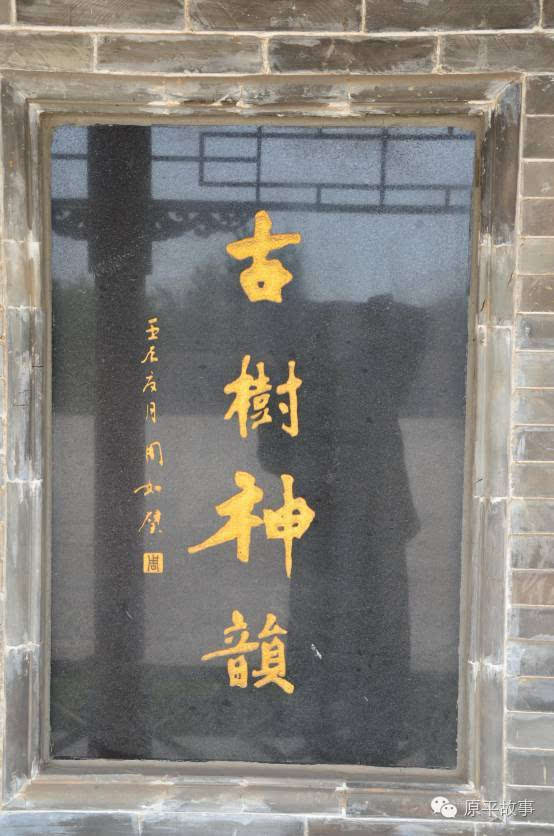 古樹神韻
壬辰夏月周如璧
周
原平故事